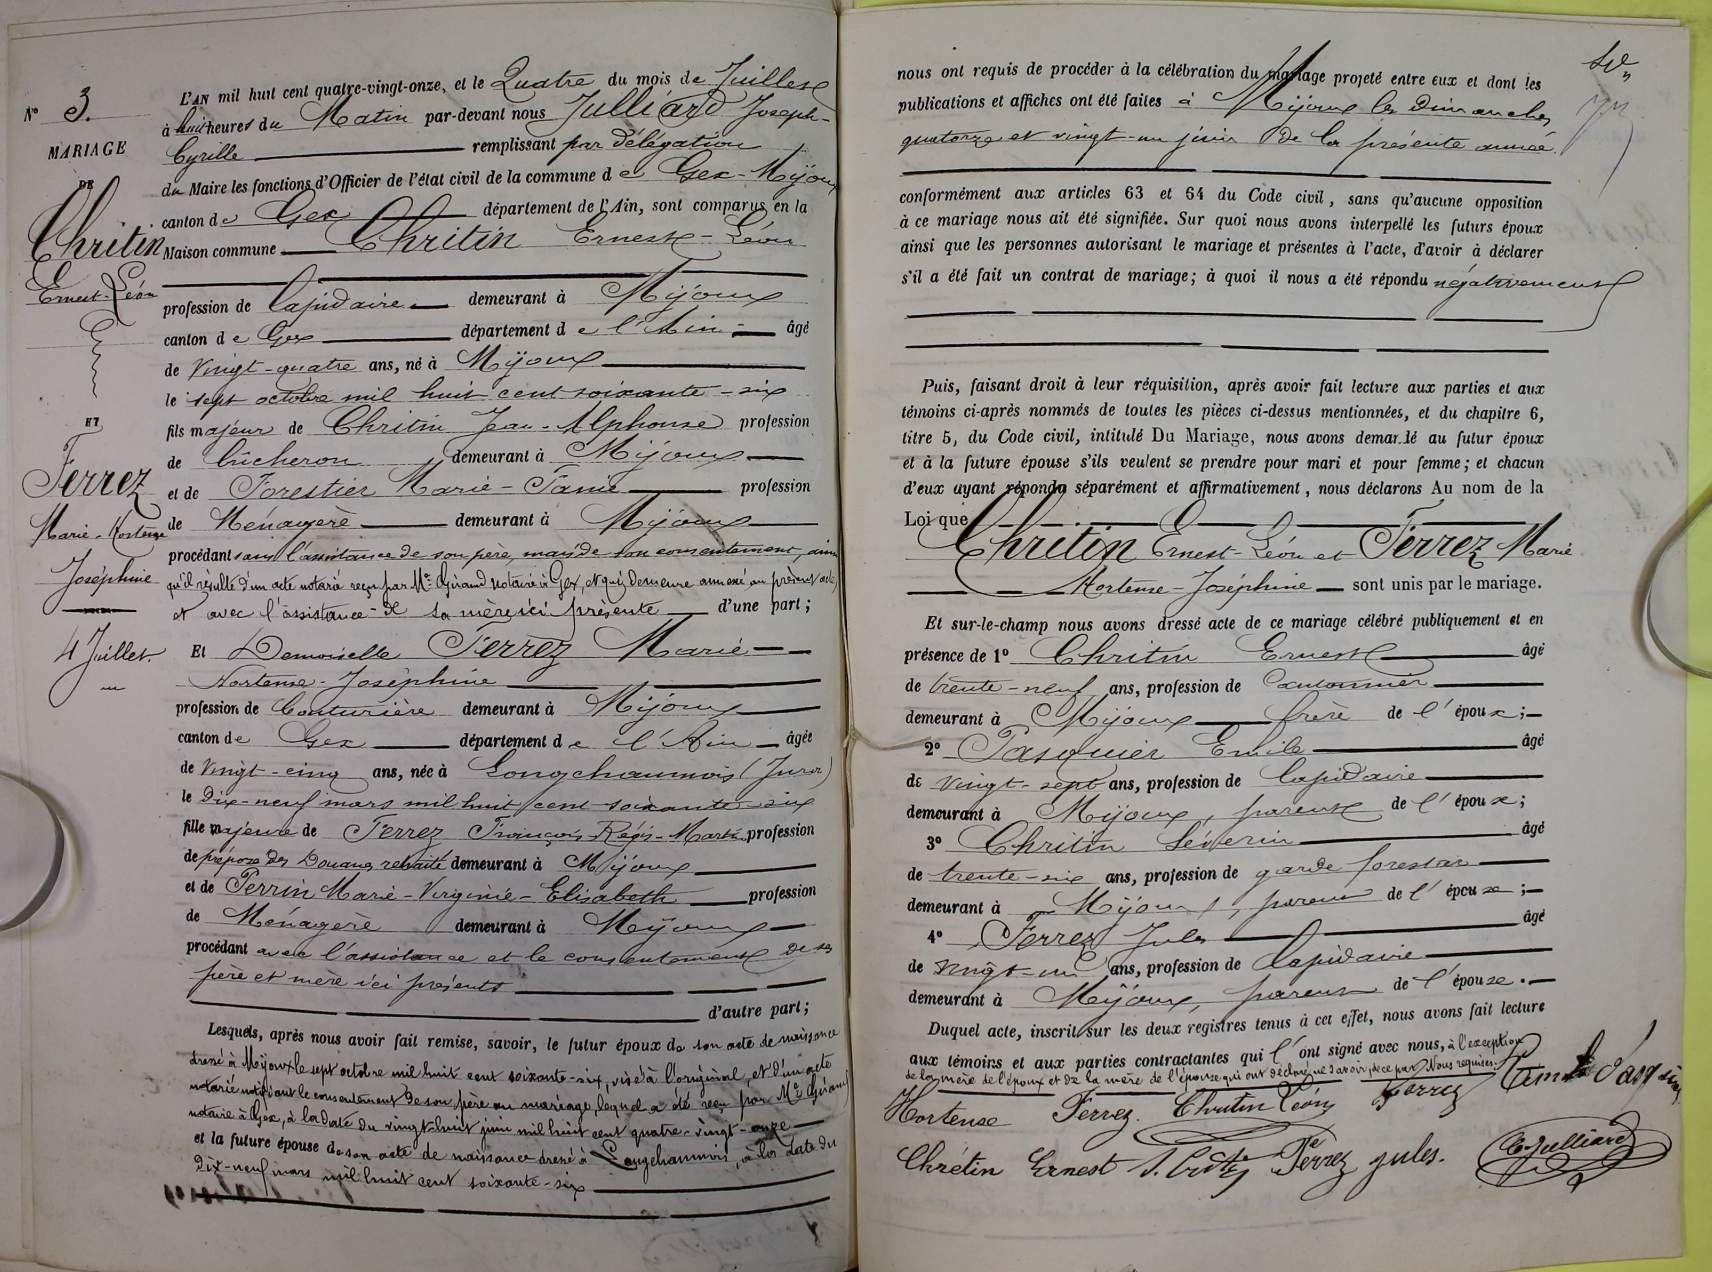 N° 3.
MARIAGE
DE
Chritin
Ernest-Léon
ET
Ferrez
Marie-Hortense
Joséphine
4 Juillet.
L'AN mil huit cent quatre-vingt-onze, et le Quatre du mois de Juillet
à huit heures du Matin par-devant nous Julliard Joseph-
Cyrille remplissant par délégation
du Maire les fonctions d'Officier de l'état civil de la commune d e Gex-Mijoux
canton de Gex département de l'Ain, sont comparus en la
Maison commune Chritin Ernest-Léon
profession de lapidaire demeurant à Mijoux
canton d e Gex département d e l'Ain âgé
de vingt-quatre ans, né à Mijoux
le sept octobre mil huit cent soixante-six
fils majeur de Chritin Jean-Alphonse profession
de bûcheron demeurant à Mijoux
et de Forestier Marie-Fanie profession
de Ménagère demeurant à Mijoux
procédant sans l'assistance de son père, mais de son consentement, ainsi
qu'il résulte d'un acte notarié reçu par Me Girand notaire à Gex, et qui demeure annexé au présent acte,
et avec l'assistance de sa mère ici présente d'une part;
Et Demoiselle Ferrez Marie
Hortense-Joséphine
profession de Couturière demeurant à Mijoux
canton de Gex département d e l'Ain âgée
de vingt-cinq ans, née à Longchaumois (Jura)
le dix-neuf mars mil huit cent soixante-six
fille majeure de Ferrez François-Régis-Martin profession
de préposé des Douanes retraité demeurant à Mijoux
et de Perrin Marie-Virginie-Elisabeth profession
de Ménagère demeurant à Mijoux
procédant avec l'assistance et le consentement de ses
père et mère ici présents
d'autre part;
Lesquels, après nous avoir fait remise, savoir, le futur époux de son acte de naissance
dressé à Mijoux le sept octobre mil huit cent soixante-six, visé à l'original, et d'un acte
notarié notifiant le consentement de son père au mariage, lequel a été reçu par Me Girand
notaire à Gex, à la date du vingt-huit juin mil huit cent quatre-vingt-onze
et la future épouse de son acte de naissance dressé à Longchaumois, à la date du
dix-neuf mars mil huit cent soixante-six
nous ont requis de procéder à la célébration du mariage projeté entre eux et dont les
publications et affiches ont été faites à Mijoux les dimanches
quatorze et vingt-un juin de la présente année.
conformément aux articles 63 et 64 du Code civil, sans qu'aucune opposition
à ce mariage nous ait été signifiée. Sur quoi nous avons interpellé les futurs époux
ainsi que les personnes autorisant le mariage et présentes à l'acte, d'avoir à déclarer
s'il a été fait un contrat de mariage; à quoi il nous a été répondu négativement
Puis, faisant droit à leur réquisition, après avoir fait lecture aux parties et aux
témoins ci-après nommés de toutes les pièces ci-dessus mentionnées, et du chapitre 6,
titre 5, du Code civil, intitulé Du Mariage, nous avons demandé au futur époux
et à la future épouse s'ils veulent se prendre pour mari et pour femme; et chacun
d'eux ayant répondu séparément et affirmativement, nous déclarons Au nom de la
Loi que
Chritin Ernest-Léon et Ferrez Marie
Hortense-Joséphine sont unis par le mariage.
Et sur-le-champ nous avons dressé acte de ce mariage célébré publiquement et en
présence de 1° Chritin Ernest âgé
de trente-neuf ans, profession de Cantonnier
demeurant à Mijoux frère de l'époux;
2° Pasquier Emile âgé
de vingt-sept ans, profession de lapidaire
demeurant à Mijoux, parent de l'époux;
3° Chritin Séverin âgé
de trente-six ans, profession de garde forestier
demeurant à Mijoux, parent de l'époux;
4° Ferrez Jules âgé
de vingt-un ans, profession de lapidaire
demeurant à Mijoux, parent de l'épouse.
Duquel acte, inscrit sur les deux registres tenus à cet effet, nous avons fait lecture
aux témoins et aux parties contractantes qui l'ont signé avec nous, à l'exception
de la mère de l'époux et de la mère de l'épouse qui ont déclaré ne savoir, de ce par Nous requises.
Hortense Ferrez. Chritin Léon Ferrez
Chrétin Ernest Ferrez jules. Julliard